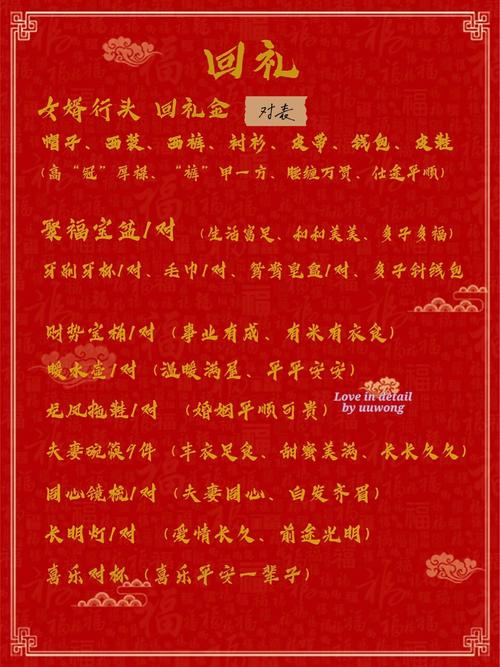 回礼
女婿行头 回礼金 对表
帽子、西装、西裤、衬衫、皮带、钱包、皮鞋
(高“冠”厚禄、“裤”甲一方、腰缠万贯、仕途平顺)
聚福宝盆1对 (生活富足、和和美美、多子多福)
牙刷牙杯1对、毛巾1对、鸳鸯皂盒1对、多子针线包
财势宝桶1对 (事业有成、有米有衣食)
暖水壶1对 (温暖满屋、平平安安)
龙凤拖鞋1对 (婚姻平顺可贵)
Love in detail
by uuwong
夫妻碗筷9件 (丰衣足食、甜蜜美满、长长久久)
同心镜梳1对 (夫妻同心、白发齐眉)
长明灯1对 (爱情长久、前途光明)
喜乐对杯 (喜乐平安一辈子)